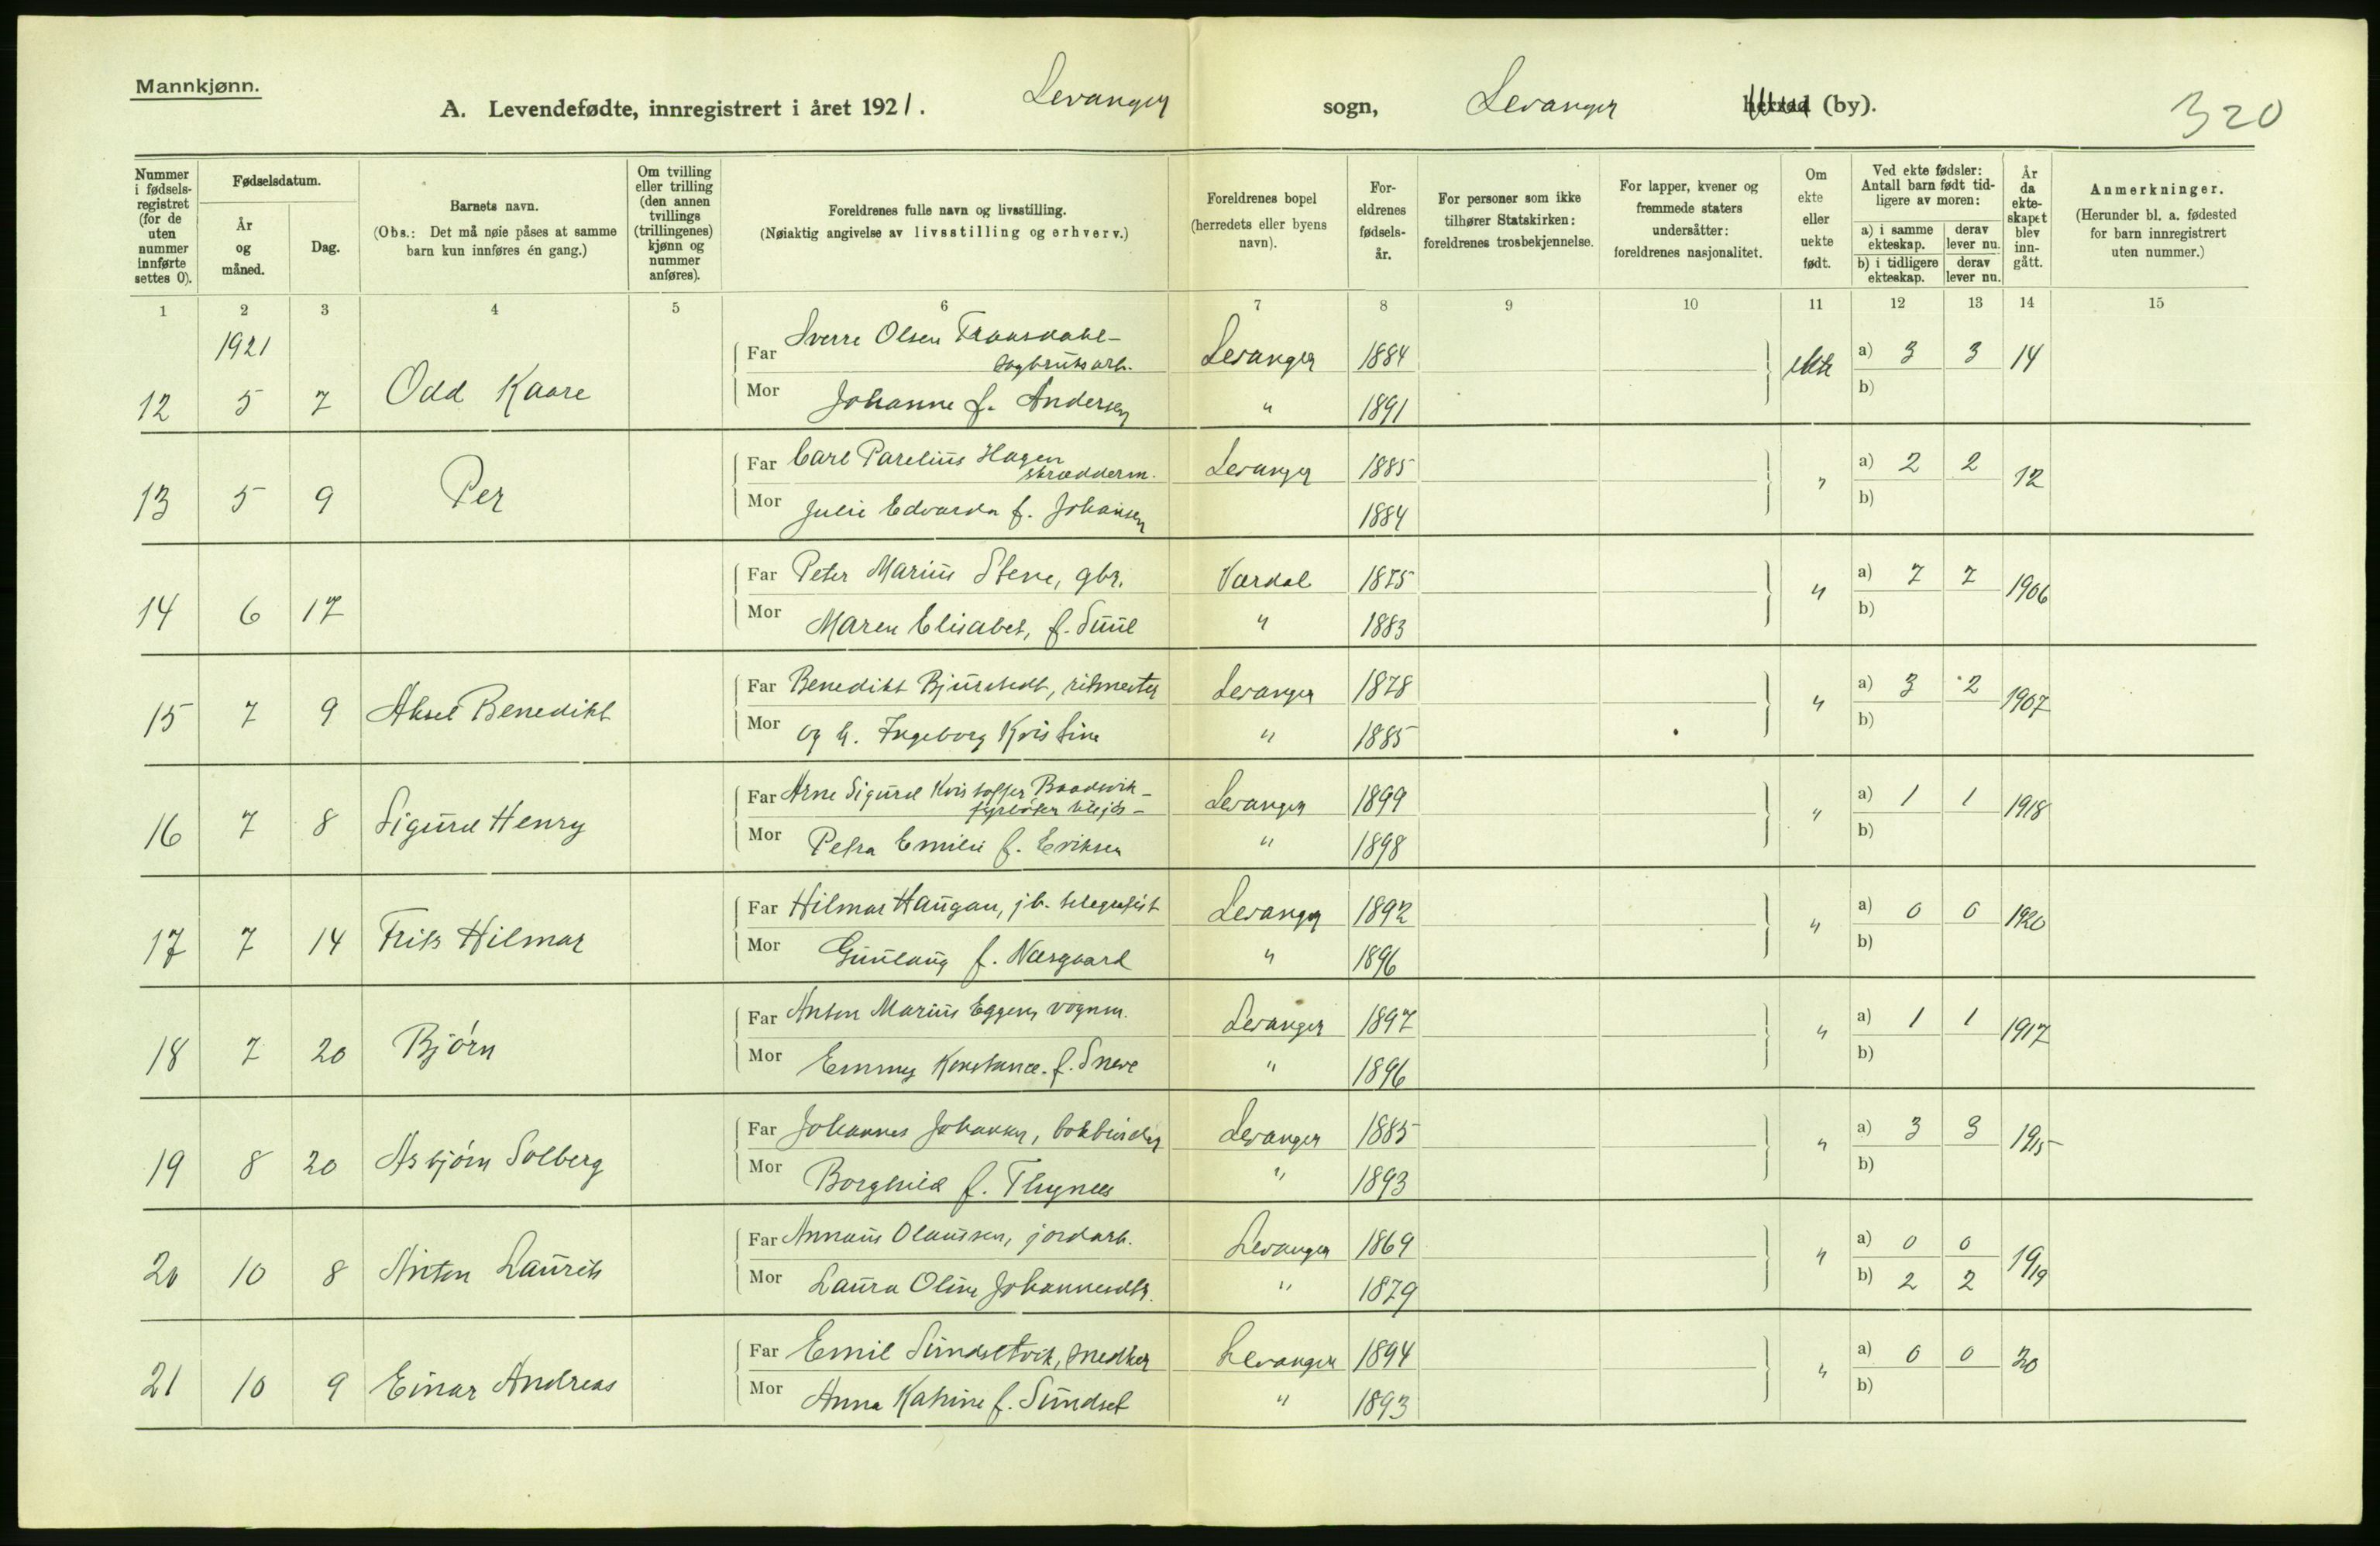 Mannkjønn.
A. Levendefødte, innregistrert i året 1921. Levanger sogn, Levanger herred (by). 320
Nummer i fødsels-registret (for de uten nummer innførte settes 0).
Fødselsdatum.
År og måned.
Dag.
Barnets navn.
(Obs.: Det må nøie påses at samme barn kun innføres én gang.)
Om tvilling eller trilling (den annen tvillings (trillingenes) kjønn og nummer anføres).
Foreldrenes fulle navn og livsstilling.
(Nøiaktig angivelse av livsstilling og erhverv.)
Foreldrenes bopel (herredets eller byens navn).
For-eldrenes fødsels-år.
For personer som ikke tilhører Statskirken: foreldrenes trosbekjennelse.
For lapper, kvener og fremmede staters undersåtter: foreldrenes nasjonalitet.
Om ekte eller uekte født.
Ved ekte fødsler: Antall barn født tid-ligere av moren:
a) i samme ekteskap. derav lever nu.
b) i tidligere ekteskap. derav lever nu.
År da ekte-skapet blev inn-gått.
Anmerkninger.
(Herunder bl. a. fødested for barn innregistrert uten nummer.)
1 2 3 4 5 6 7 8 9 10 11 12 13 14 15
1921
Far Sverre Olsen Levanger 1884 ekte a) 3 3 14
sagbruksarb.
12 5 7 Odd Kaare Mor Johanne f. Andersen " 1891 b)
Far Carl Parelius Hagen Levanger 1885 " a) 2 2 12
skrædderm.
13 5 9 Per Mor Julie Edvarda f. Johansen 1884 b)
Far Peter Marius Stene, gbr. Værdal 1875 " a) 7 7 1906
14 6 17 Mor Maren Elisabet, f. Suul " 1883 b)
Far Benedikt Bjurstedt, ritmester Levanger 1878 " a) 3 2 1907
15 7 9 Aksel Benedikt Mor og h. Ingeborg Kristine " 1885 b)
Far Arne Sigurd Kristoffer Levanger 1899 " a) 1 1 1918
16 7 8 Sigurd Henry Mor Petra Emilie f. Eriksen " 1898 b)
Far Hilmar Haugan, jb. telegrafist Levanger 1892 " a) 0 0 1920
17 7 14 Frits Hilmar Mor Gunlaug f. Næsgaard " 1896 b)
Far Anton Marius Eggen, vognm. Levanger 1897 " a) 1 1 1917
18 7 20 Bjørn Mor Emmy Konstance. f. Sneve " 1896 b)
Far Johannes Johansen, bokbinder Levanger 1885 " a) 3 3 1915
19 8 20 Asbjørn Solberg Mor Borghild f. Thynes " 1893 b)
Far Annæus Olaussen, jordarb. Levanger 1869 " a) 0 0 1919
20 10 8 Anton Laurits Mor Laura Oline Johannesdtr. " 1879 b) 2 2
Far Emil Sundsetvik, snedker Levanger 1894 " a) 0 0 20
21 10 9 Einar Andreas Mor Anna Katrine f. Sundset " 1893 b)